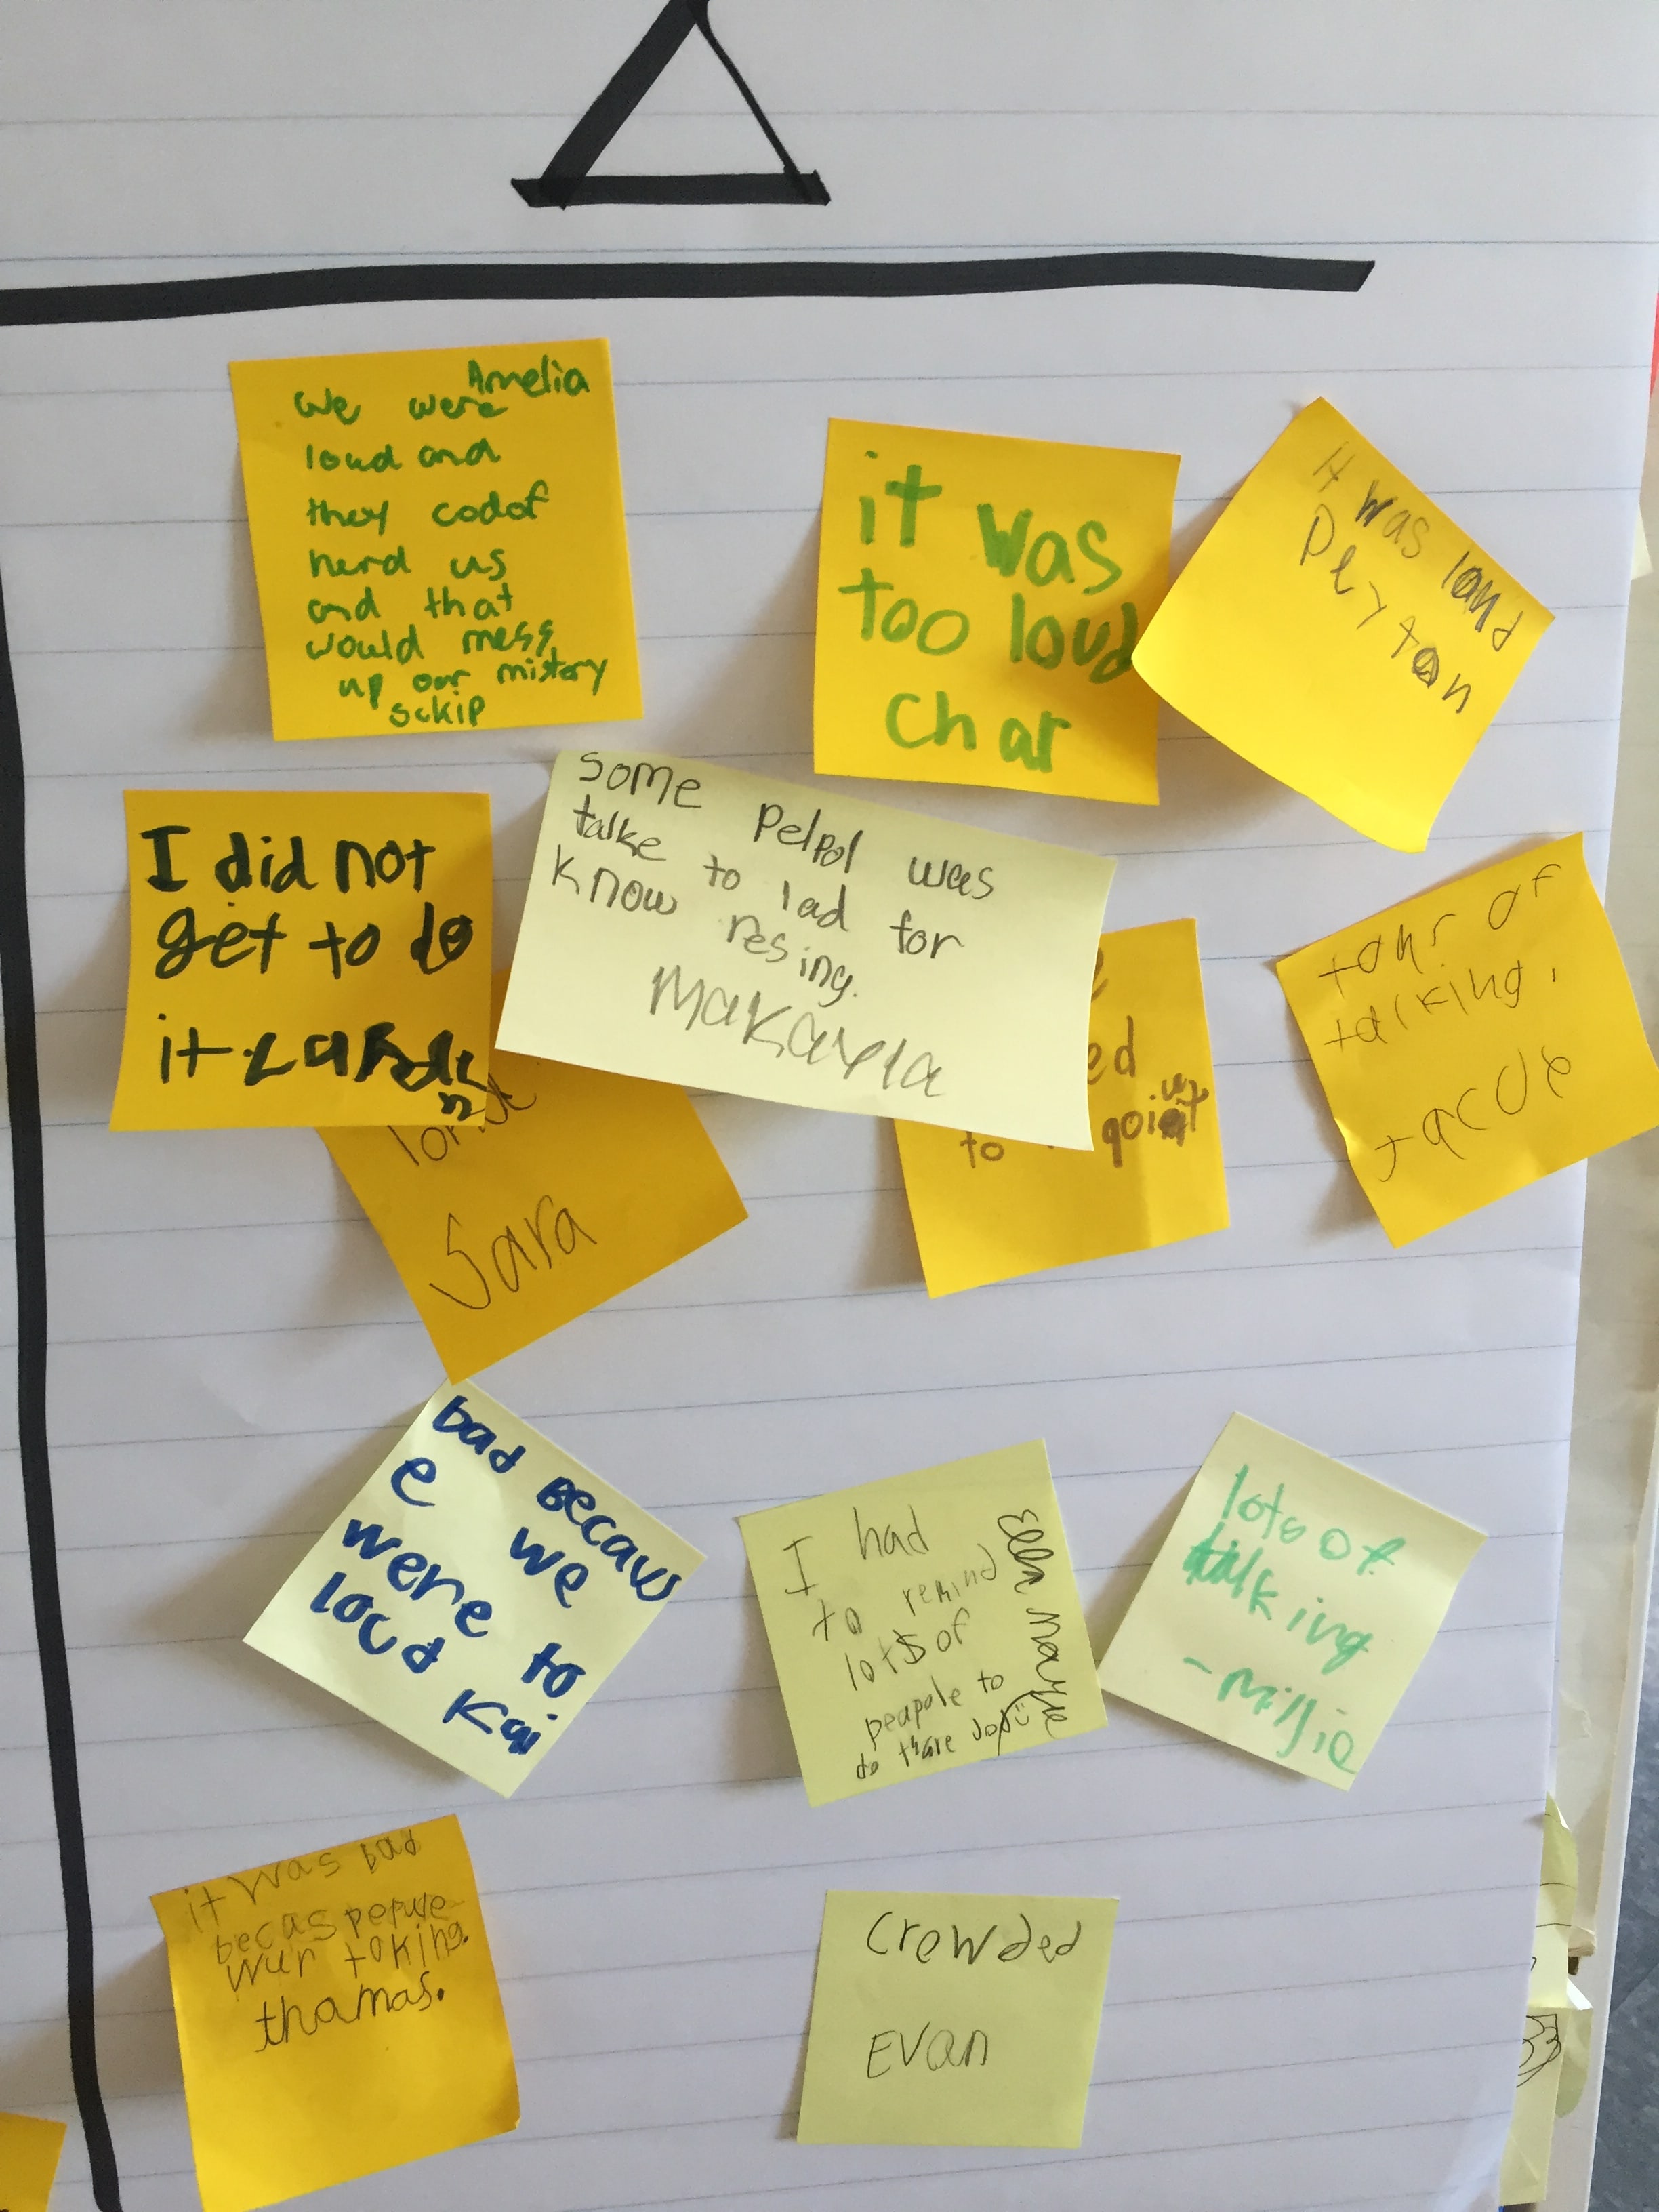 Amelia
we were
loud and
they codof
herd us
and that
would mess
up our mistery
sckip
it was
too loud
char
It was loud
Peyton
I did not
get to do
it
some pelpol was
talke to lad for
know resing.
Makayla
Sara
ed
to going
tons of
talking.
bad Becaus
e we
were to
loud Kai
I had
to remind
lots of
peapole to
do thare jop
Ella Mayre
lots of
talking
-millie
it was bad
becas pepule
wur toking.
thomas.
crewded
Evan